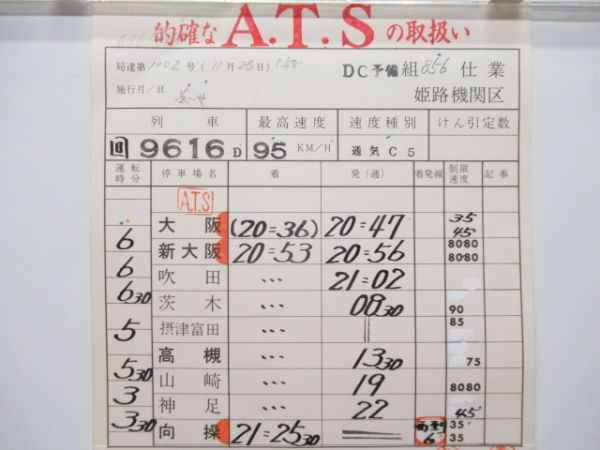 的確な A.T.S の取扱い
局達第1002号(11月28日)S50 DC予備組856仕業
施行月/日 姫路機関区
列車 最高速度 速度種別 けん引定数
回9616D 95 KM/H 通気C5
運転時分 停車場名 着 発(通) 着発線 制限速度 記事
A.T.S
大阪 (20=36) 20=47 35 45
6 新大阪 20=53 20=56 8080 8080
6 吹田 … 21=02
6 30 茨木 … 08 30 90
摂津富田 … 〃 85
5 高槻 … 13 30 75
5 30 山崎 … 19 8080
3 神足 … 22 45
3 30 向操 21=25 30 = 6 35 35